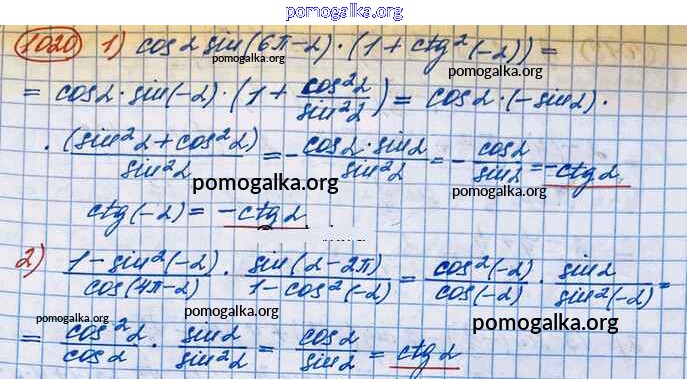 pomogalka.org
1020 1) cos α sin(6π-α)·(1+ctg²(-α))=
pomogalka.org
= cosα·sin(-α)·(1+cos²α/sin²α)= cosα·(-sinα)·
pomogalka.org
·(sin²α+cos²α)/sin²α = -cosα·sinα/sin²α = -cosα/sinα = -ctg α
pomogalka.org pomogalka.org
ctg(-α)= -ctg α
2) 1-sin²(-α)/cos(4π-α) · sin(α-2π)/1-cos²(-α) = cos²(-α)/cos(-α) · sinα/sin²(-α) =
pomogalka.org pomogalka.org pomogalka.org
= cos²α/cosα · sinα/sin²α = cosα/sinα = ctg α
pomogalka.org